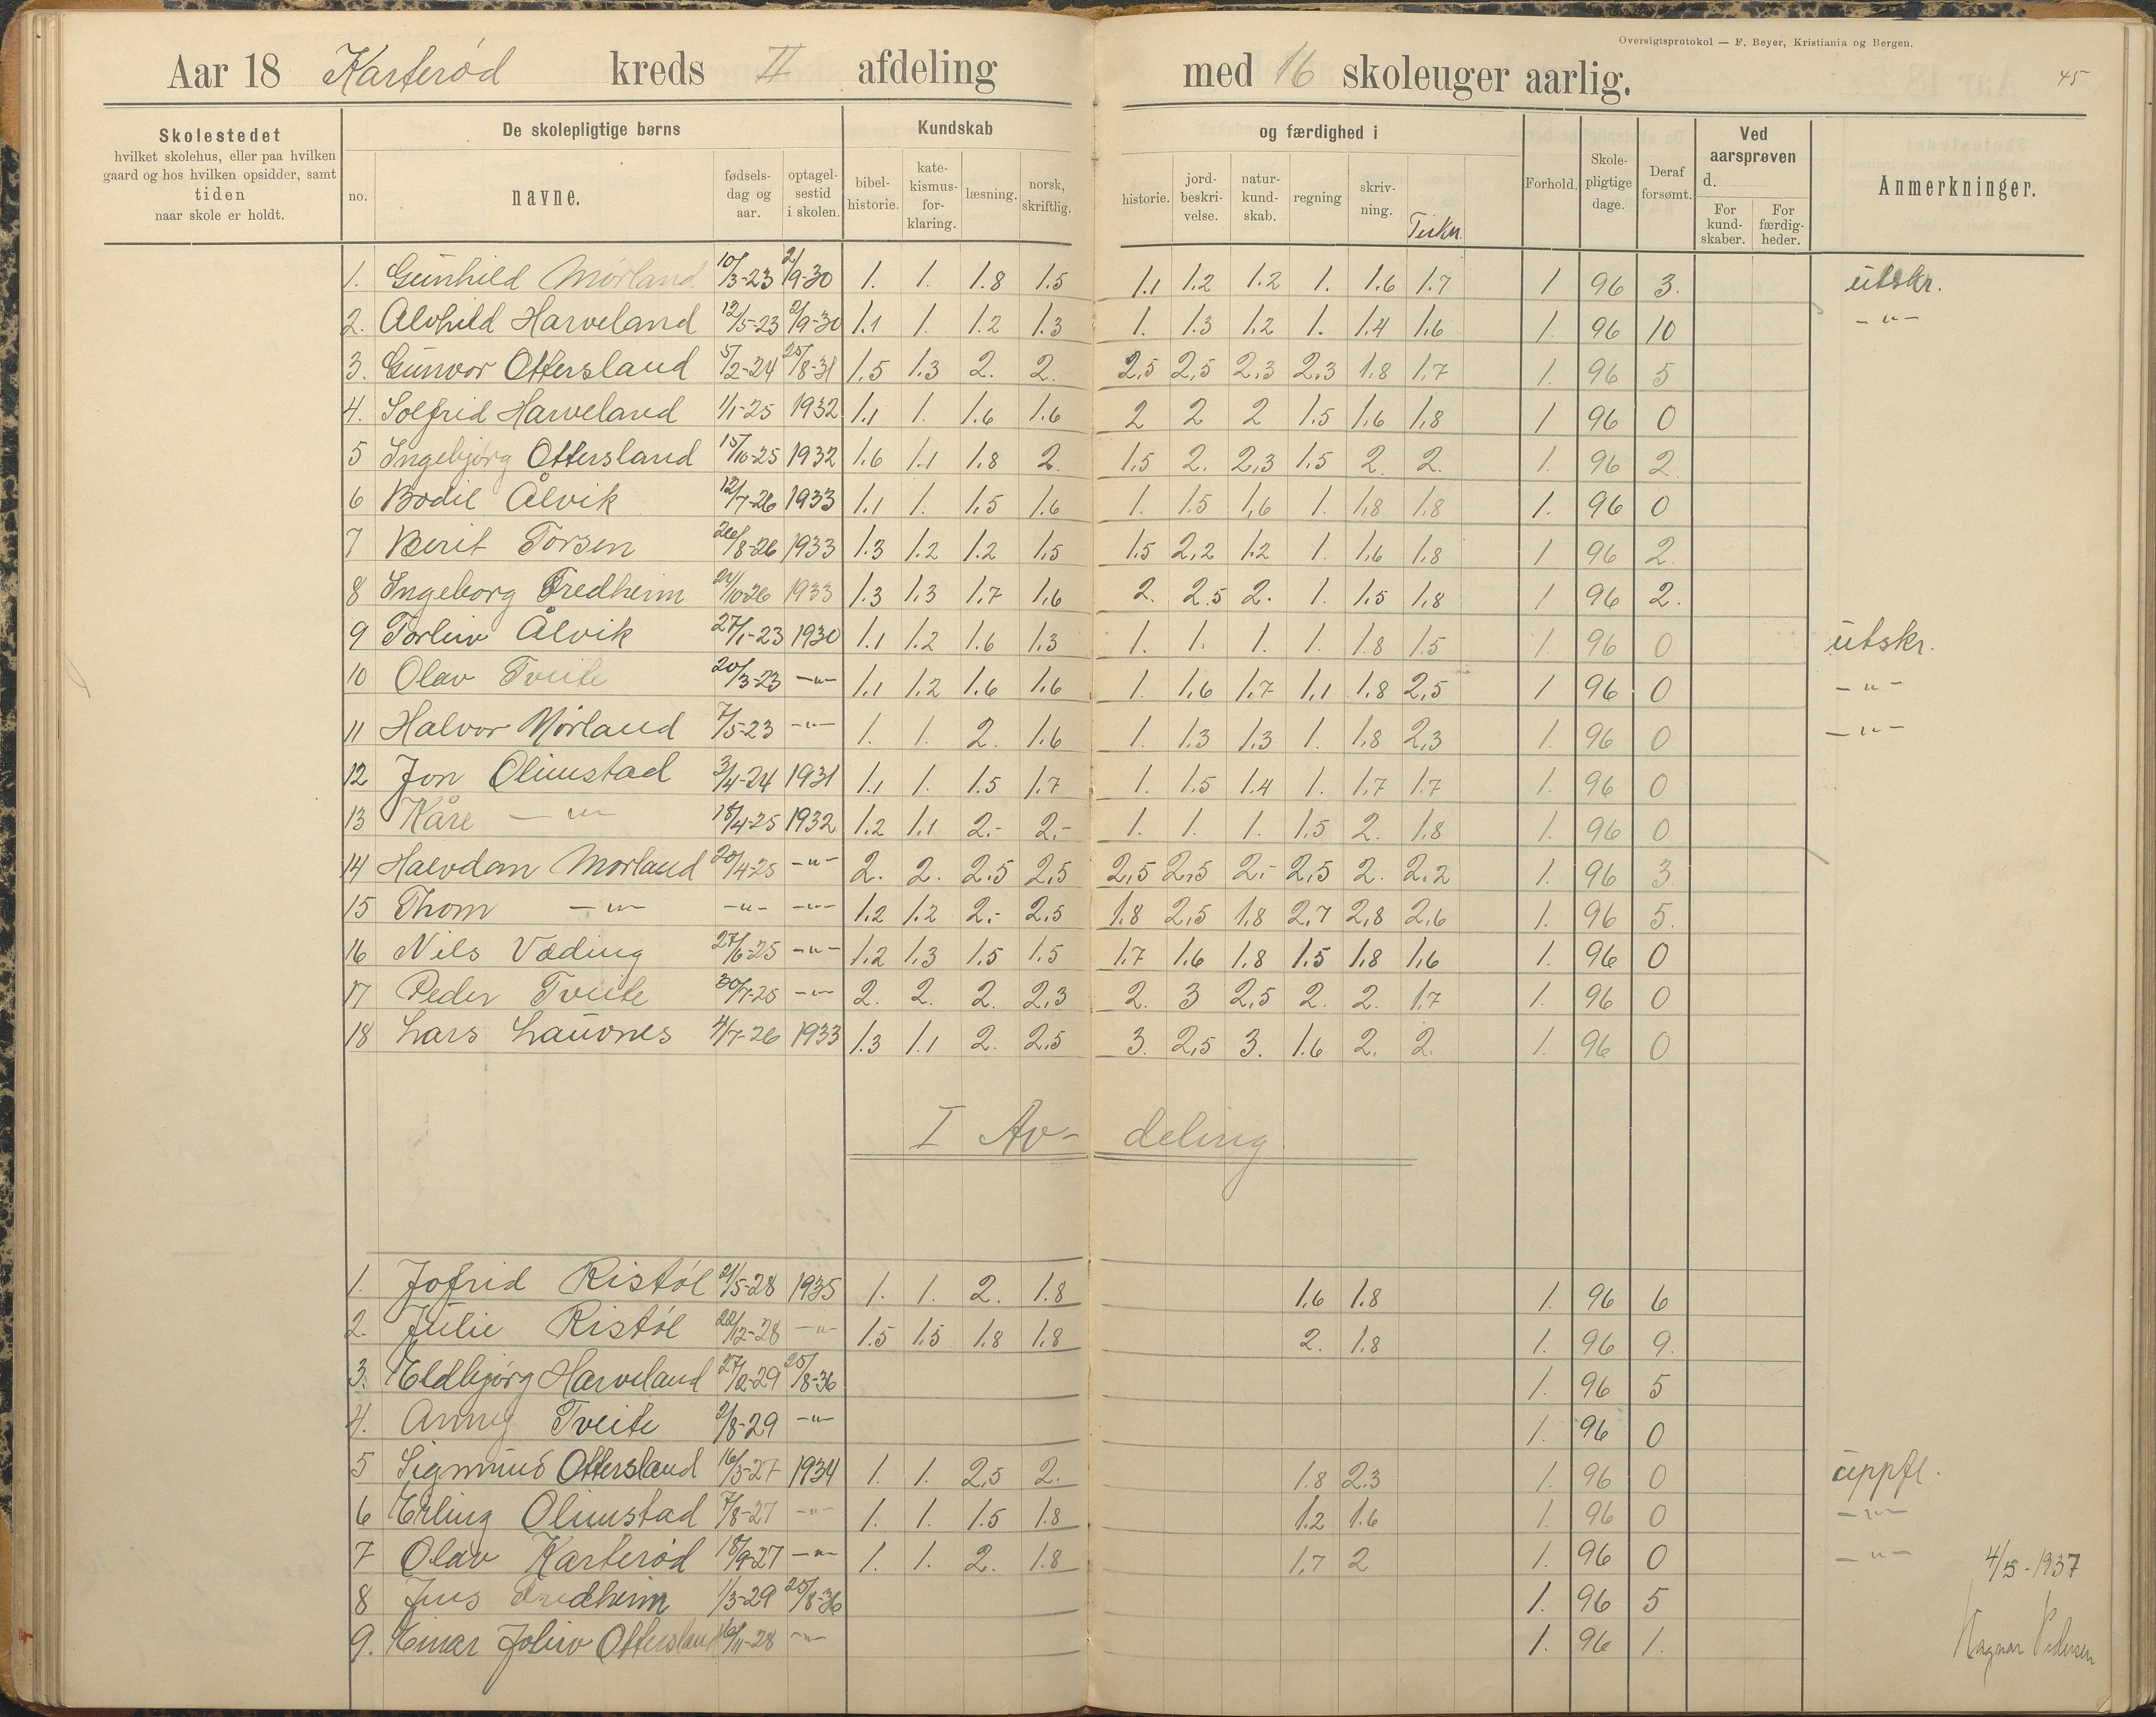 Oversigtsprotokol — F. Beyer, Kristiania og Bergen.
Aar 18 Karterød kreds II afdeling med 16 skoleuger aarlig. 45
Skolestedet hvilket skolehus, eller paa hvilken gaard og hos hvilken opsidder, samt tiden naar skole er holdt.
De skolepligtige børns
no. navne. fødsels-dag og aar. optagel-sestid i skolen.
Kundskab og færdighed i
bibel-historie. kate-kismus-for-klaring. læsning. norsk, skriftlig. historie. jord-beskri-velse. natur-kund-skab. regning skriv-ning. Teikn.
Forhold. Skole-pligtige dage. Deraf forsømt.
Ved aarsprøven d.
For kund-skaber. For færdig-heder.
Anmerkninger.
1. Gunhild Mørland 10/3-23 2/9-30 1. 1. 1.8 1.5 1.1 1.2 1.2 1. 1.6 1.7 1 96 3. utskr.
2. Alvhild Harveland 12/5-23 2/9-30 1.1 1. 1.2 1.3 1. 1.3 1.2 1. 1.4 1.6 1. 96 10 -"-
3. Gunvor Ottersland 5/2-24 25/8-31 1.5 1.3 2. 2. 2.5 2.5 2.3 2.3 1.8 1.7 1. 96 5
4. Solfrid Harveland 1/1-25 1932 1.1 1. 1.6 1.6 2 2 2 1.5 1.6 1.8 1 96 0
5 Ingebjørg Ottersland 15/10-25 1932 1.6 1.1 1.8 2. 1.5 2. 2.3 1.5 2. 2. 1. 96 2.
6 Bodil Ålvik 12/7-26 1933 1.1 1. 1.5 1.6 1. 1.5 1.6 1. 1.8 1.8 1. 96 0
7 Berit Torsen 26/8-26 1933 1.3 1.2 1.2 1.5 1.5 2.2 1.2 1. 1.6 1.8 1 96 2.
8 Ingeborg Fredheim 24/10-26 1933 1.3 1.3 1.7 1.6 2. 2.5 2. 1. 1.5 1.8 1 96 2.
9 Torleiv Ålvik 27/1-23 1930 1.1 1.2 1.6 1.3 1. 1. 1. 1. 1.8 1.5 1. 96 0 utskr.
10 Olav Tveite 20/3-23 -"- 1.1 1.2 1.6 1.6 1. 1.6 1.7 1.1 1.8 2.5 1 96 0 -"-
11 Halvor Mørland 7/5-23 -"- 1. 1. 2. 1.6 1. 1.3 1.3 1. 1.8 2.3 1. 96 0 -"-
12 Jon Olimstad 3/4-24 1931 1.1 1. 1.5 1.7 1. 1.5 1.4 1. 1.7 1.7 1. 96 0
13 Kåre -"- 18/4-25 1932 1.2 1.1 2.- 2.- 1. 1. 1. 1.5 2. 1.8 1. 96 0
14 Halvdan Mørland 20/4-25 -"- 2. 2. 2.5 2.5 2.5 2.5 2.- 2.5 2. 2.2 1. 96 3
15 Thom -"- -"- -"- 1.2 1.2 2.- 2.5 1.8 2.5 1.8 2.7 2.8 2.6 1. 96 5.
16 Nils Væding 27/6-25 -"- 1.2 1.3 1.5 1.5 1.7 1.6 1.8 1.5 1.8 1.6 1. 96 0
17 Peder Tveite 30/7-25 -"- 2. 2. 2. 2.3 2. 3 2.5 2. 2. 1.7 1. 96 0
18 Lars Lauvnes 4/7-26 1933 1.3 1.1 2. 2.5 3. 2.5 3. 1.6 2. 2. 1. 96 0
I Av- deling.
1. Jofrid Ristøl 21/5-28 1935 1. 1. 2. 1.8 1.6 1.8 1. 96 6
2. Julie Ristøl 22/12-28 -"- 1.5 1.5 1.8 1.8 2. 1.8 1. 96 9.
3. Eldbjørg Harveland 27/2-29 25/8-36 1. 96 5
4. Anny Tveite 2/8-29 -"- 1. 96 0
5 Sigmund Ottersland 16/3-27 1934 1. 1. 2.5 2. 1.8 2.3 1. 96 0 uppfl.
6 Erling Olimstad 7/8-27 -"- 1. 1. 1.5 1.8 1.2 1.6 1. 96 0 -"-
7 Olav Karterød 18/9-27 -"- 1. 1. 2. 1.8 1.7 2 1. 96 0 -"- 4/5-1937
8 Jens Fredheim 1/3-29 25/8-36 1. 96 5
9. Einar Joleiv Ottersland 16/11-28 -"- 1. 96 1. Ragnar Pedersen